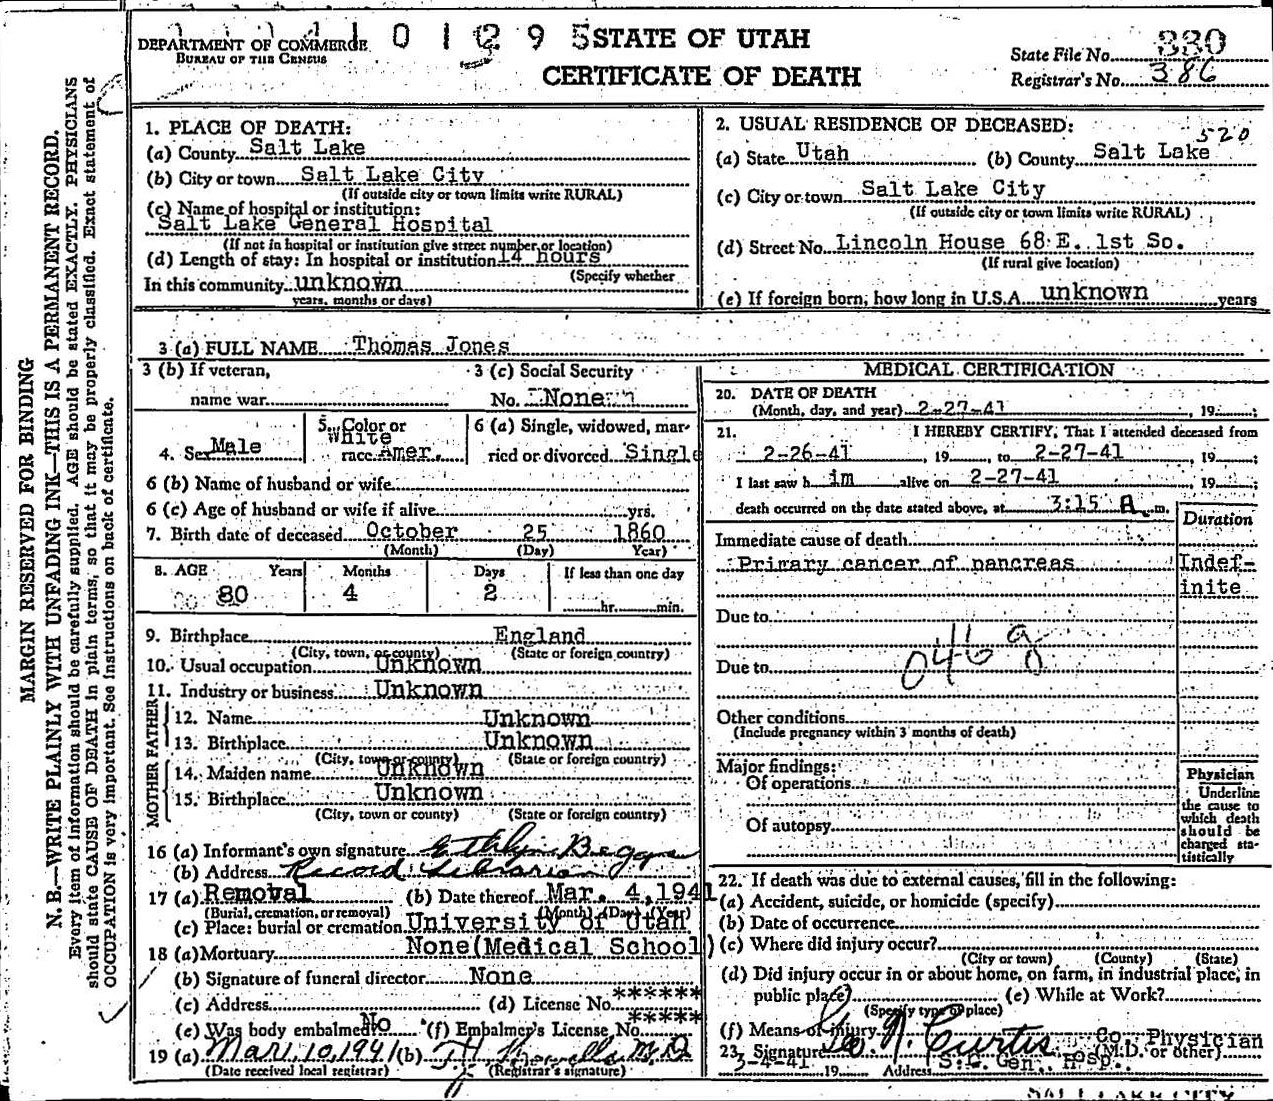 DEPARTMENT OF COMMERCE
BUREAU OF THE CENSUS
STATE OF UTAH
CERTIFICATE OF DEATH
State File No. 330
Registrar's No. 386
MARGIN RESERVED FOR BINDING
N. B.—WRITE PLAINLY WITH UNFADING INK—THIS IS A PERMANENT RECORD.
Every item of information should be carefully supplied. AGE should be stated EXACTLY. PHYSICIANS
should state CAUSE OF DEATH in plain terms, so that it may be properly classified. Exact statement of
OCCUPATION is very important. See instructions on back of certificate.
1. PLACE OF DEATH:
(a) County Salt Lake
(b) City or town Salt Lake City
(If outside city or town limits write RURAL)
(c) Name of hospital or institution:
Salt Lake General Hospital
(If not in hospital or institution give street number or location)
(d) Length of stay: In hospital or institution 14 hours
(Specify whether
In this community unknown
years, months or days)
2. USUAL RESIDENCE OF DECEASED:
520
(a) State Utah (b) County Salt Lake
(c) City or town Salt Lake City
(If outside city or town limits write RURAL)
(d) Street No. Lincoln House 68 E. 1st So.
(If rural give location)
(e) If foreign born, how long in U.S.A. unknown years
3 (a) FULL NAME Thomas Jones
3 (b) If veteran,
name war
3 (c) Social Security
No. None
4. Sex Male
5. Color or
White
race Amer.
6 (a) Single, widowed, mar-
ried or divorced Single
6 (b) Name of husband or wife
6 (c) Age of husband or wife if alive yrs.
7. Birth date of deceased October 25 1860
(Month) (Day) Year)
8. AGE Years Months Days If less than one day
80 4 2 hr. min.
9. Birthplace England
(City, town, or county) (State or foreign country)
10. Usual occupation Unknown
11. Industry or business Unknown
FATHER
12. Name Unknown
13. Birthplace Unknown
(City, town or county) (State or foreign country)
MOTHER
14. Maiden name Unknown
15. Birthplace Unknown
(City, town or county) (State or foreign country)
16 (a) Informant's own signature Beggs
(b) Address Record Librarian
17 (a) Removal (b) Date thereof Mar. 4, 1941
(Burial, cremation, or removal) (Month) (Day) (Year)
(c) Place: burial or cremation University of Utah
18 (a) Mortuary None (Medical School)
(b) Signature of funeral director None
(c) Address (d) License No. ******
(e) Was body embalmed No (f) Embalmer's License No. *****
19 (a) Mar. 10, 1941 (b) M.D.
(Date received local registrar) (Registrar's signature)
MEDICAL CERTIFICATION
20. DATE OF DEATH
(Month, day, and year) 2-27-41, 19 ;
21. I HEREBY CERTIFY, That I attended deceased from
2-26-41, 19 , to 2-27-41, 19 ;
I last saw h im alive on 2-27-41, 19 ;
death occurred on the date stated above, at 3:15 A. m.
Duration
Immediate cause of death
Primary cancer of pancreas
Indef-
inite
Due to
046 g
Due to
Other conditions
(Include pregnancy within 3 months of death)
Major findings:
Of operations
Of autopsy
Physician
Underline
the cause to
which death
should be
charged sta-
tistically
22. If death was due to external causes, fill in the following:
(a) Accident, suicide, or homicide (specify)
(b) Date of occurrence
(c) Where did injury occur?
(City or town) (County) (State)
(d) Did injury occur in or about home, on farm, in industrial place, in
public place? (e) While at Work?
(Specify type of place)
(f) Means of injury
23. Signature Geo. N. Curtis Co. Physician
(M.D. or other)
3-4-41 19 Address S.L. Gen. Hosp.
SALT LAKE CITY